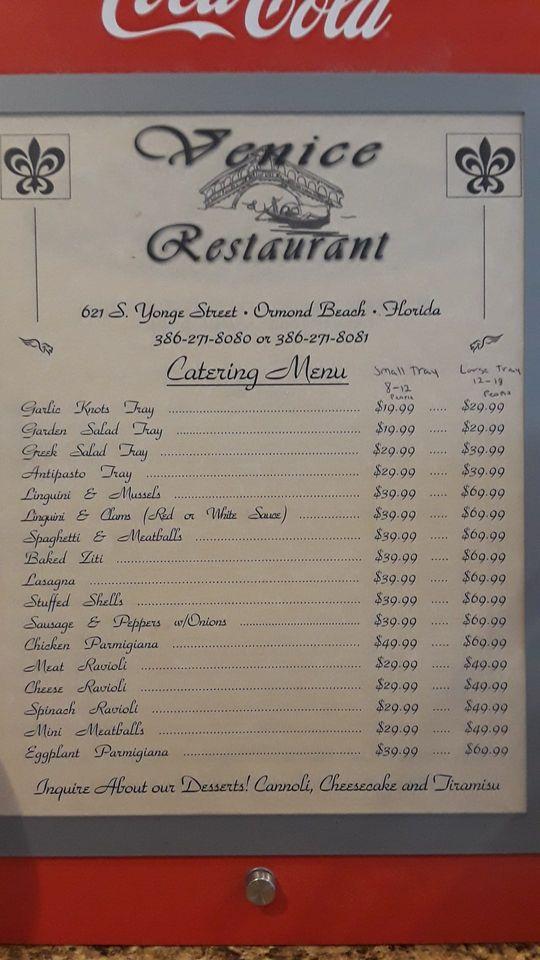 Coca-Cola
Venice
Restaurant
621 S. Yonge Street • Ormond Beach • Florida
386-271-8080 or 386-271-8081
Catering Menu Small Tray Large Tray
8-12 12-18
People People
Garlic Knots Tray $19.99 ..... $29.99
Garden Salad Tray $19.99 ..... $29.99
Greek Salad Tray $29.99 ..... $39.99
Antipasto Tray $29.99 ..... $39.99
Linguini & Mussels $39.99 ..... $69.99
Linguini & Clams (Red or White Sauce) $39.99 ..... $69.99
Spaghetti & Meatballs $39.99 ..... $69.99
Baked Ziti $39.99 ..... $69.99
Lasagna $39.99 ..... $69.99
Stuffed Shells $39.99 ..... $69.99
Sausage & Peppers w/Onions $39.99 ..... $69.99
Chicken Parmigiana $49.99 ..... $69.99
Meat Ravioli $29.99 ..... $49.99
Cheese Ravioli $29.99 ..... $49.99
Spinach Ravioli $29.99 ..... $49.99
Mini Meatballs $29.99 ..... $49.99
Eggplant Parmigiana $39.99 ..... $69.99
Inquire About our Desserts! Cannoli, Cheesecake and Tiramisu